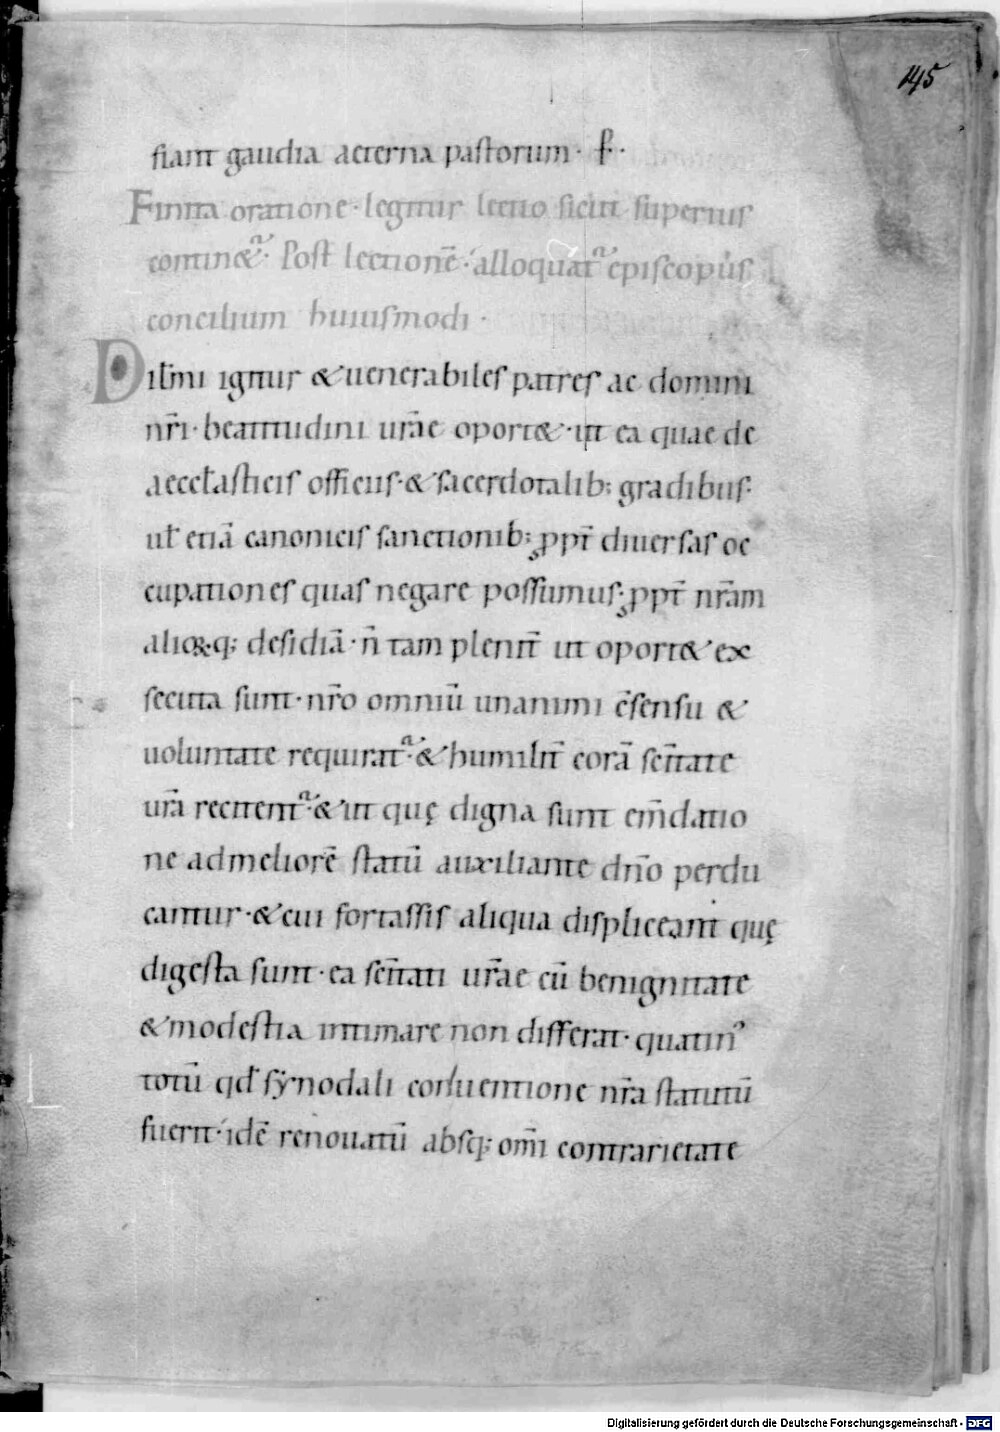 145
fiant gaudia aeterna pastorum · p̄ ·
Finita oratione · legitur lectio sicut superius
contin&ᷣ · Post lectionē · alloquatᷣ episcopus
concilium huiusmodi ·
Dilm̄i igitur & uenerabiles patres ac domini
nr̄i · beatitudini ur̄ae oport& · ut ea quae de
aeccłasticis officiis · & sacerdotalib; gradibus ·
uł etiā canonicis sanctionib; ꝓpt̄ diuersas oc
cupationes quas negare possumus; ꝓpt̄ nr̄am
aliq&q; desidiā · n̄ tam plenit̄ ut oport& ex
secuta sunt · nr̄o omniū unanimi c̄sensu &
uoluntate requiratᷣ · & humilit̄ corā sc̄itate
ur̄a recitentᷣ · & ut quę digna sunt em̄datio
ne ad meliorē statū auxiliante dn̄o perdu
cantur · & cui fortassis aliqua displiceant quę
digesta sunt · ea sc̄itati ur̄ae cū benignitate
& modestia intimare non differat · quatin⁹
totū qđ synodali conuentione nr̄a statutū
fuerit · idē renouatū absq; om̄i contrarietate
Digitalisierung gefördert durch die Deutsche Forschungsgemeinschaft - DFG